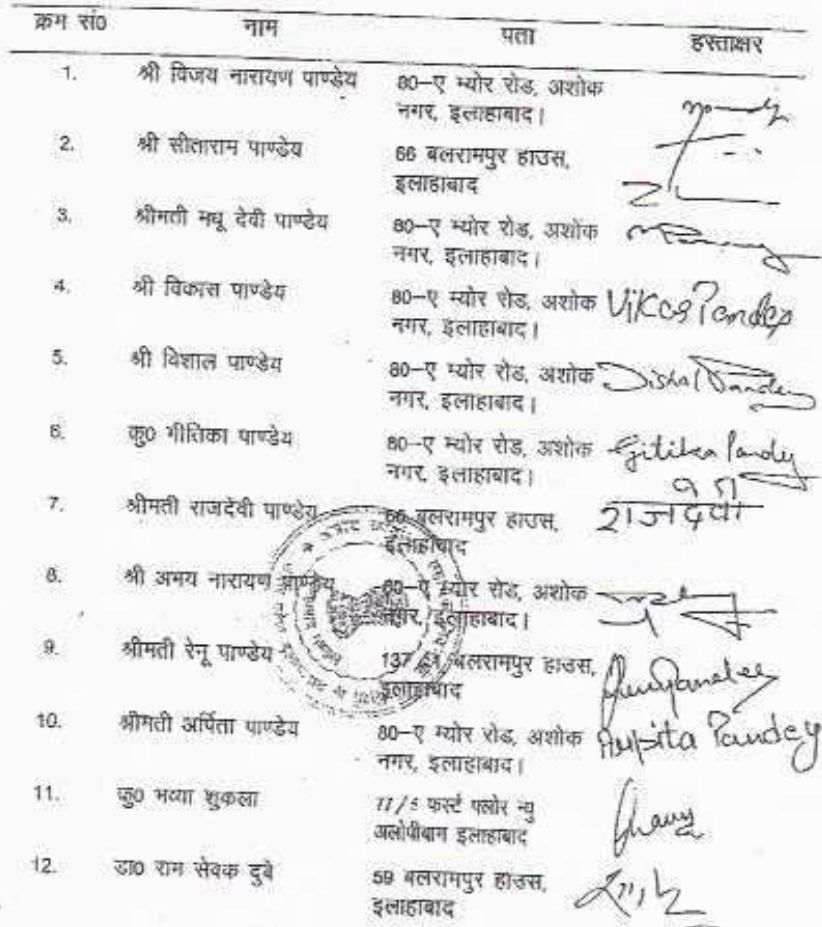 क्रम सं0 नाम पता हस्ताक्षर
1. श्री विजय नारायण पाण्डेय 80–ए म्योर रोड, अशोक
नगर, इलाहाबाद।
2. श्री सीताराम पाण्डेय 66 बलरामपुर हाउस,
इलाहाबाद
3. श्रीमती मधू देवी पाण्डेय 80–ए म्योर रोड, अशोक
नगर, इलाहाबाद।
4. श्री विकास पाण्डेय 80–ए म्योर रोड, अशोक Vikas Pandey
नगर, इलाहाबाद।
5. श्री विशाल पाण्डेय 80–ए म्योर रोड, अशोक Vishal Pandey
नगर, इलाहाबाद।
6. कु0 गीतिका पाण्डेय 80–ए म्योर रोड, अशोक Gitika Pandey
नगर, इलाहाबाद।
7. श्रीमती राजदेवी पाण्डेय 66 बलरामपुर हाउस, राजदेवी
इलाहाबाद
8. श्री अभय नारायण पाण्डेय 80–ए म्योर रोड, अशोक
नगर, इलाहाबाद।
9. श्रीमती रेनू पाण्डेय 137 बलरामपुर हाउस,
इलाहाबाद
10. श्रीमती अर्पिता पाण्डेय 80–ए म्योर रोड, अशोक Arpita Pandey
नगर, इलाहाबाद।
11. कु0 भव्या शुकला 77/5 फर्स्ट फ्लोर न्यु
अलोपीबाग इलाहाबाद
12. डा0 राम सेवक दुबे 59 बलरामपुर हाउस,
इलाहाबाद